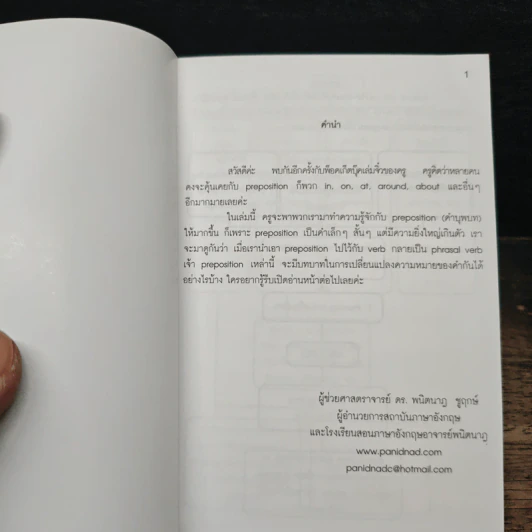 1
คำนำ
สวัสดีค่ะ พบกันอีกครั้งกับพ็อคเก็ตบุ๊คเล่มจิ๋วของครู ครูคิดว่าหลายคน
คงจะคุ้นเคยกับ preposition ก็พวก in, on, at, around, about และอื่นๆ
อีกมากมายเลยค่ะ
ในเล่มนี้ ครูจะพาพวกเรามาทำความรู้จักกับ preposition (คำบุพบท)
ให้มากขึ้น ก็เพราะ preposition เป็นคำเล็กๆ สั้นๆ แต่มีความยิ่งใหญ่เกินตัว เรา
จะมาดูกันว่า เมื่อเรานำเอา preposition ไปไว้กับ verb กลายเป็น phrasal verb
เจ้า preposition เหล่านี้ จะมีบทบาทในการเปลี่ยนแปลงความหมายของคำกันได้
อย่างไรบ้าง ใครอยากรู้รีบเปิดอ่านหน้าต่อไปเลยค่ะ
ผู้ช่วยศาสตราจารย์ ดร. พนิตนาฎ ชูฤกษ์
ผู้อำนวยการสถาบันภาษาอังกฤษ
และโรงเรียนสอนภาษาอังกฤษอาจารย์พนิตนาฎ
www.panidnad.com
panidnadc@hotmail.com